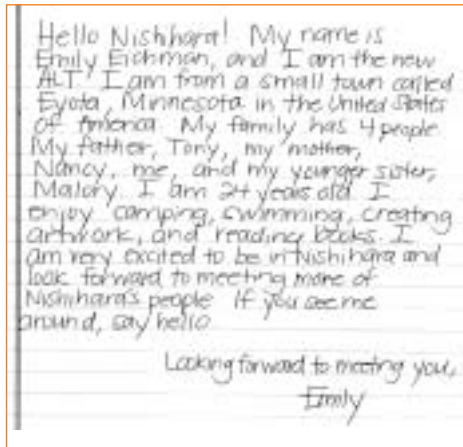 Hello Nishihara! My name is
Emily Eichman, and I am the new
ALT. I am from a small town called
Eyota, Minnesota in the United States
of America. My family has 4 people
My father, Tony, my mother,
Nancy, me, and my younger sister,
Malory. I am 24 years old. I
enjoy camping, swimming, creating
artwork, and reading books. I
am very excited to be in Nishihara and
look forward to meeting more of
Nishihara's people. If you see me
around, say hello
Looking forward to meeting you,
Emily